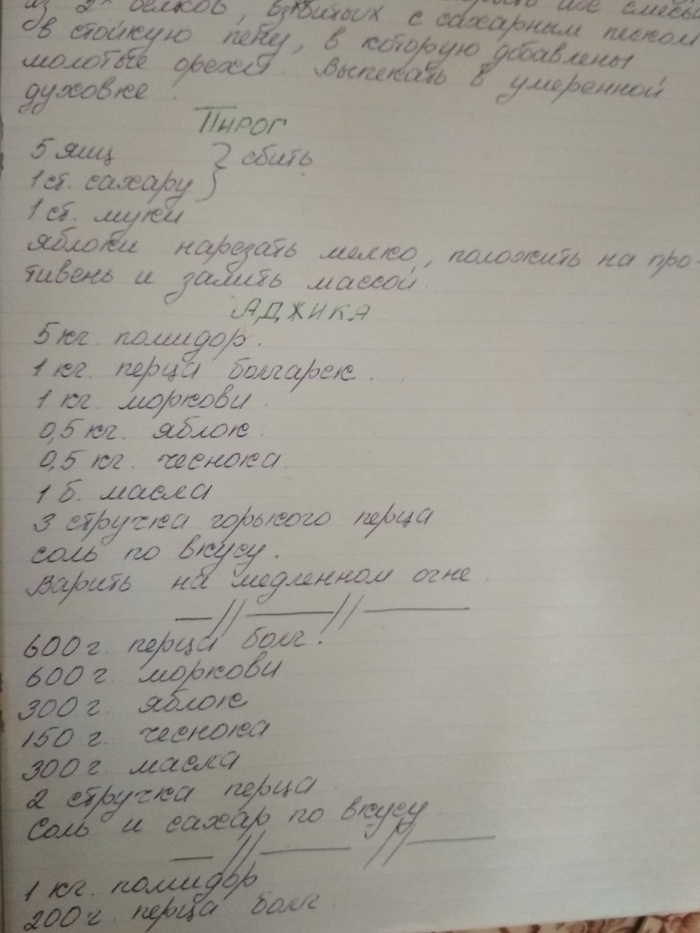 из 2х белков, взбитых с сахарным песком
в стойкую пену, в которую добавлены
молотые орехи. Выпекать в умеренной
духовке.
Пирог
5 яиц } сбить
1 ст. сахару
1 ст. муки
яблоки нарезать мелко, положить на про-
тивень и залить массой.
АДЖИКА
5 кг. помидор.
1 кг. перца болгарск.
1 кг. моркови.
0,5 кг. яблок.
0,5 кг. чеснока.
1 б. масла
3 стручка горького перца
соль по вкусу.
Варить на медленном огне.
— // — // —
600 г. перца болг.
600 г. моркови
300 г. яблок
150 г. чеснока
300 г. масла
2 стручка перца
Соль и сахар по вкусу
— // — // —
1 кг. помидор
200 г. перца болг.